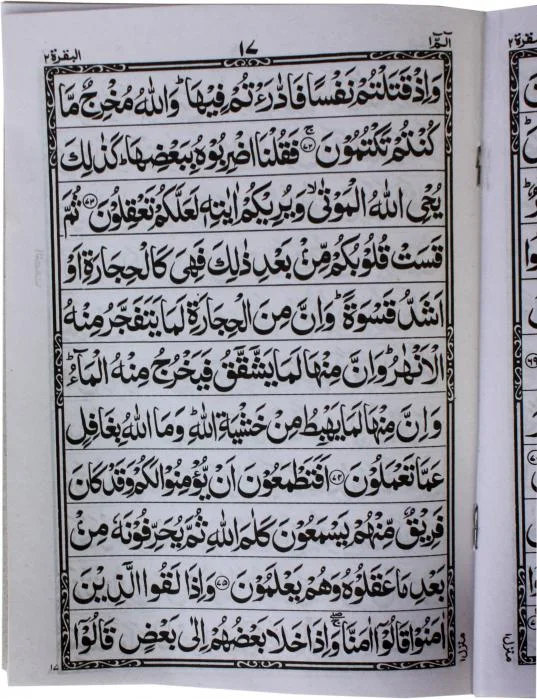 البقرة ٢
١٧
الٓمّٓ ١
وَاِذْ قَتَلْتُمْ نَفْسًا فَادّٰرَءْتُمْ فِيْهَا ؕ وَاللّٰهُ مُخْرِجٌ مَّا
كُنْتُمْ تَكْتُمُوْنَ ۚ ﴿٧٢﴾ فَقُلْنَا اضْرِبُوْهُ بِبَعْضِهَا ؕ كَذٰلِكَ
يُحْىِ اللّٰهُ الْمَوْتٰى ۙ وَيُرِيْكُمْ اٰيٰتِهٖ لَعَلَّكُمْ تَعْقِلُوْنَ ﴿٧٣﴾ ثُمَّ
قَسَتْ قُلُوْبُكُمْ مِّنْۢ بَعْدِ ذٰلِكَ فَهِىَ كَالْحِجَارَةِ اَوْ
اَشَدُّ قَسْوَةً ؕ وَاِنَّ مِنَ الْحِجَارَةِ لَمَا يَتَفَجَّرُ مِنْهُ
الْاَنْهٰرُ ؕ وَاِنَّ مِنْهَا لَمَا يَشَّقَّقُ فَيَخْرُجُ مِنْهُ الْمَآءُ ؕ
وَاِنَّ مِنْهَا لَمَا يَهْبِطُ مِنْ خَشْيَةِ اللّٰهِ ؕ وَمَا اللّٰهُ بِغَافِلٍ
عَمَّا تَعْمَلُوْنَ ﴿٧٤﴾ اَفَتَطْمَعُوْنَ اَنْ يُّؤْمِنُوْا لَكُمْ وَقَدْ كَانَ
فَرِيْقٌ مِّنْهُمْ يَسْمَعُوْنَ كَلٰمَ اللّٰهِ ثُمَّ يُحَرِّفُوْنَهٗ مِنْۢ
بَعْدِ مَا عَقَلُوْهُ وَهُمْ يَعْلَمُوْنَ ﴿٧٥﴾ وَاِذَا لَقُوا الَّذِيْنَ
اٰمَنُوْا قَالُوْٓا اٰمَنَّا ۖۚ وَاِذَا خَلَا بَعْضُهُمْ اِلٰى بَعْضٍ قَالُوْٓا
منزل ١
١٧